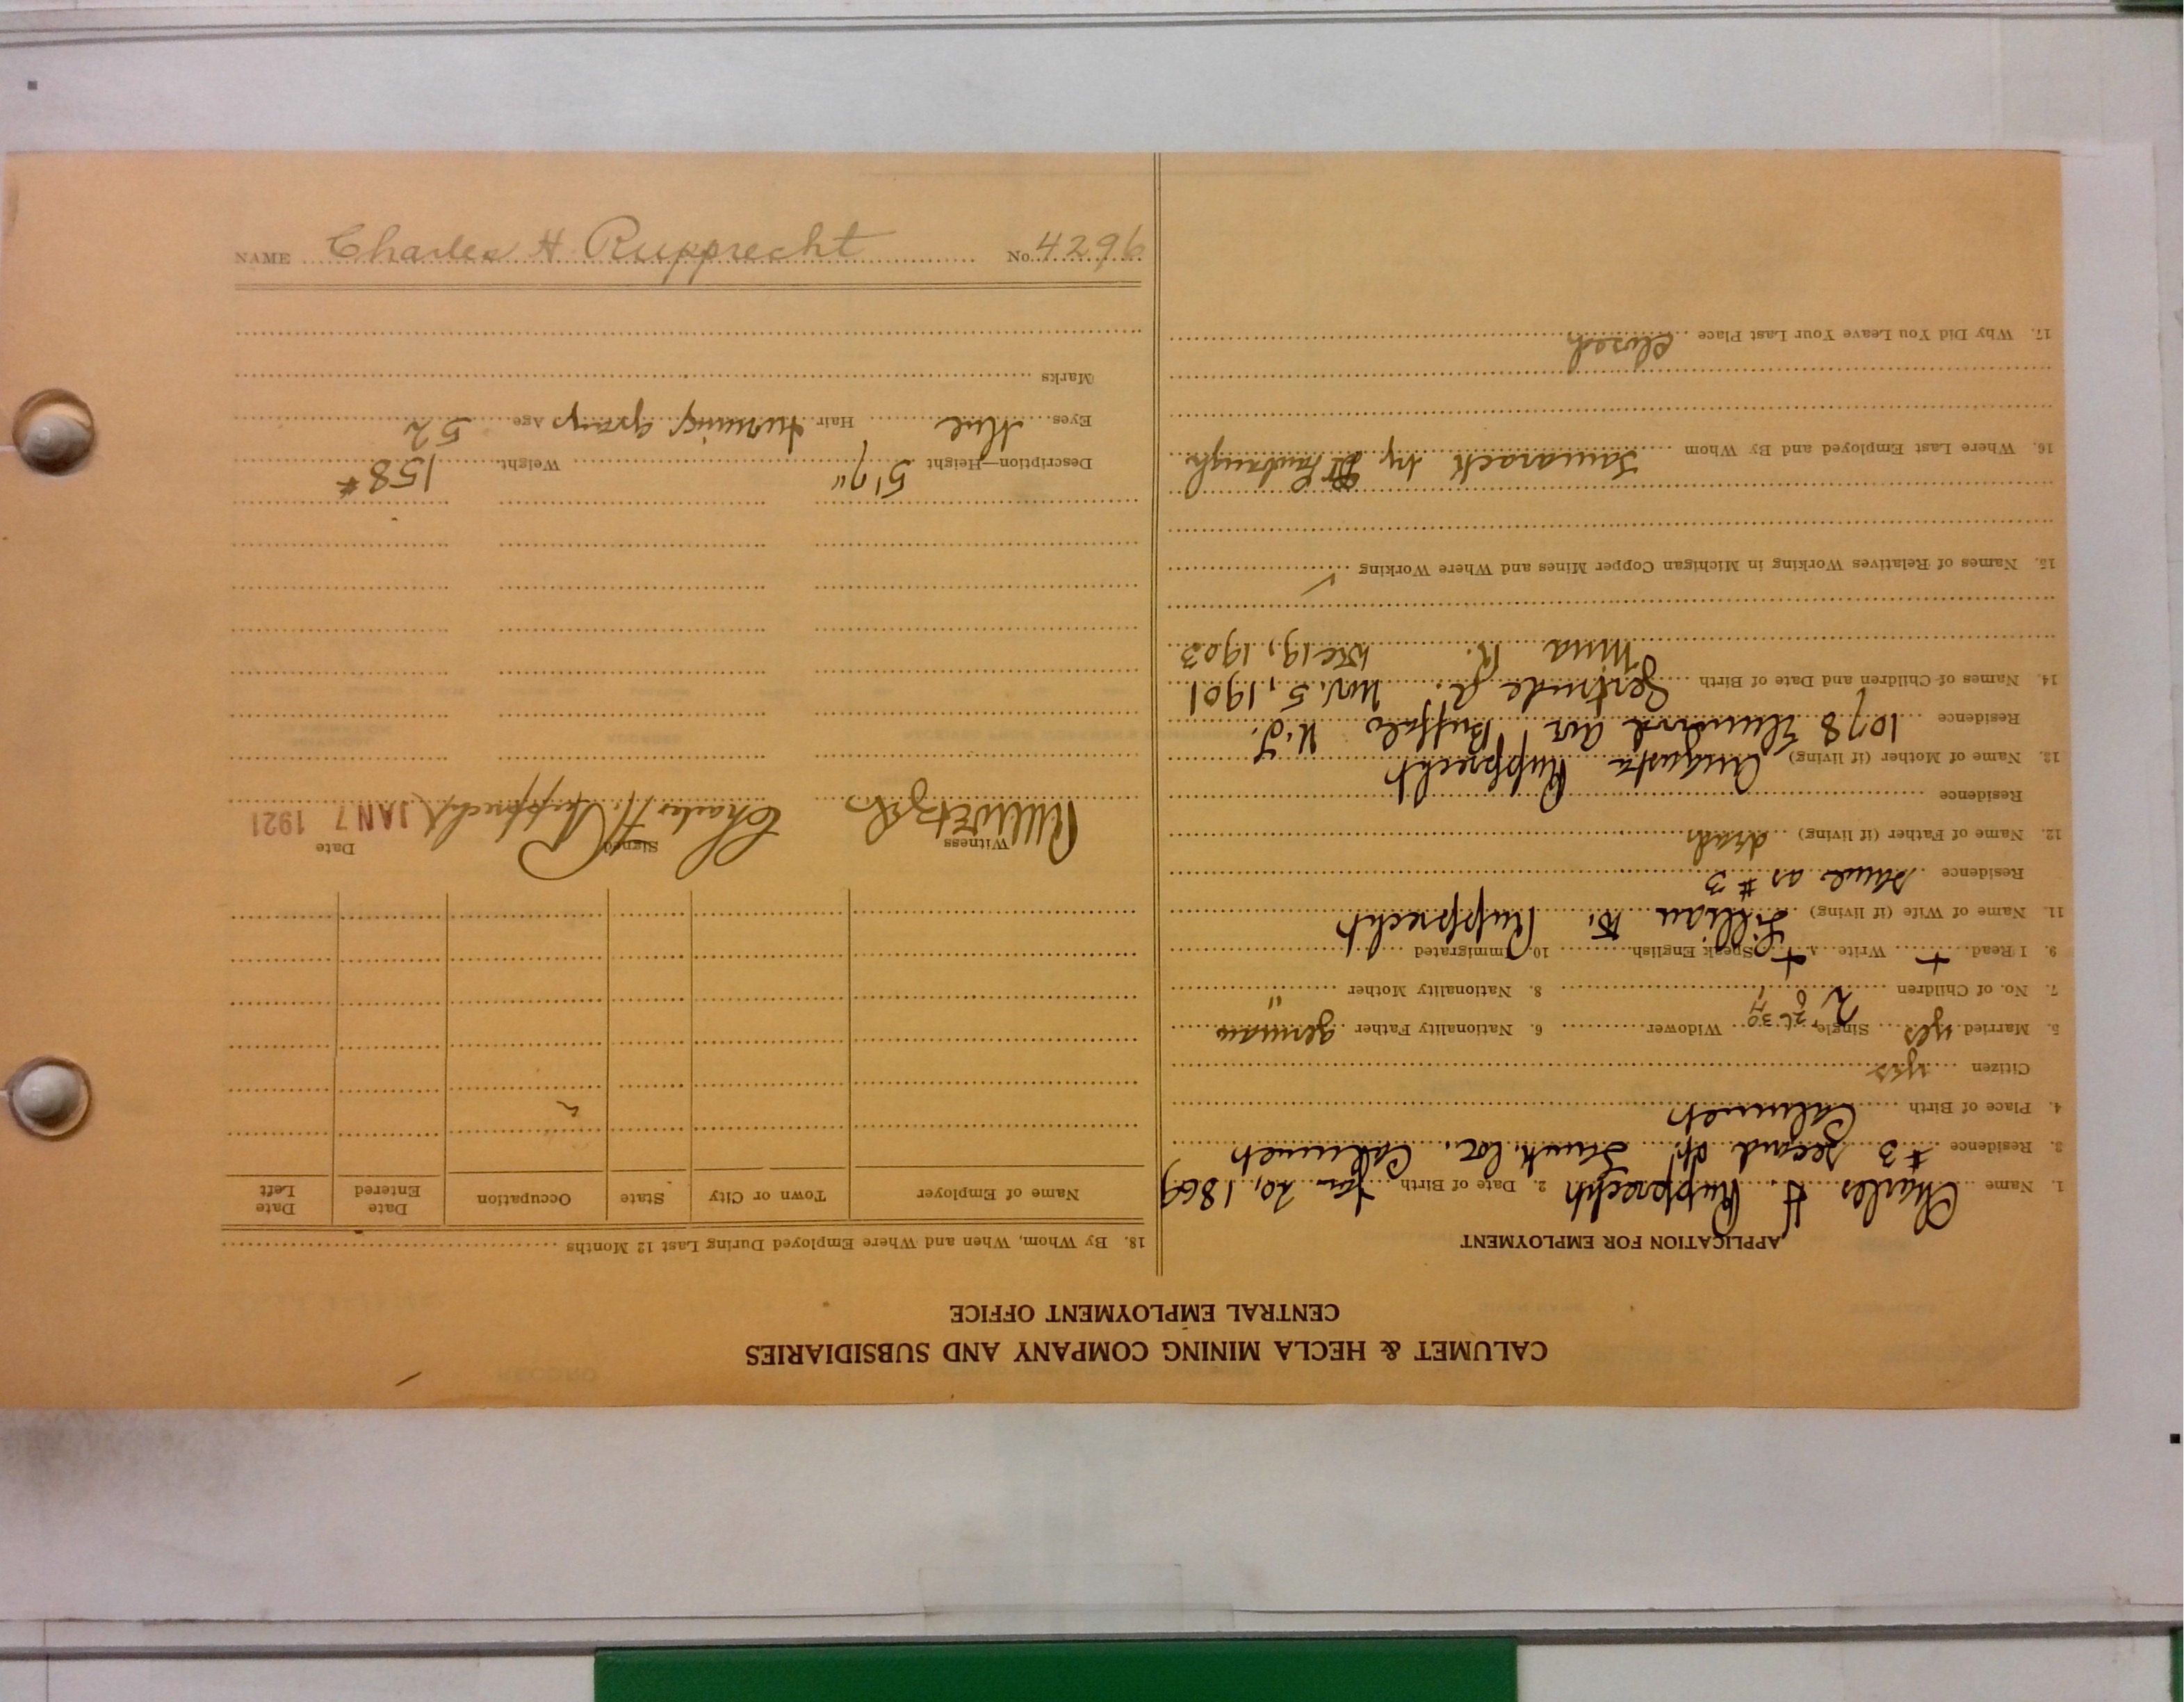 CALUMET & HECLA MINING COMPANY AND SUBSIDIARIES
CENTRAL EMPLOYMENT OFFICE
APPLICATION FOR EMPLOYMENT
1. Name Charles H. Rupprecht 2. Date of Birth Jan 20, 1869
3. Residence #3 Second St. Tam'k. Loc. Calumet
4. Place of Birth Calumet
Citizen yes
5. Married yes Single Widower 6. Nationality Father german
7. No. of Children 2 8. Nationality Mother "
9. I Read + Write + Speak English 10. Immigrated
11. Name of Wife (if living) Lillian K. Rupprecht
Residence Same as #3
12. Name of Father (if living) dead
Residence
13. Name of Mother (if living) Augusta Rupprecht
Residence 1078 Ave Buffalo N.Y.
14. Names of Children and Date of Birth Gertrude A. Nov. 5, 1901
Mina K. Dec 19, 1903
15. Names of Relatives Working in Michigan Copper Mines and Where Working
16. Where Last Employed and By Whom Tamarack by Dr
17. Why Did You Leave Your Last Place Closed
18. By Whom, When and Where Employed During Last 12 Months
Name of Employer Town or City State Occupation Date Entered Date Left
Witness Signed Date
Charles H. Rupprecht JAN 7 1921
Description—Height 5'7" Weight 158 #
Eyes blue Hair turning gray Age 52
Marks
NAME Charles H Rupprecht No. 4296